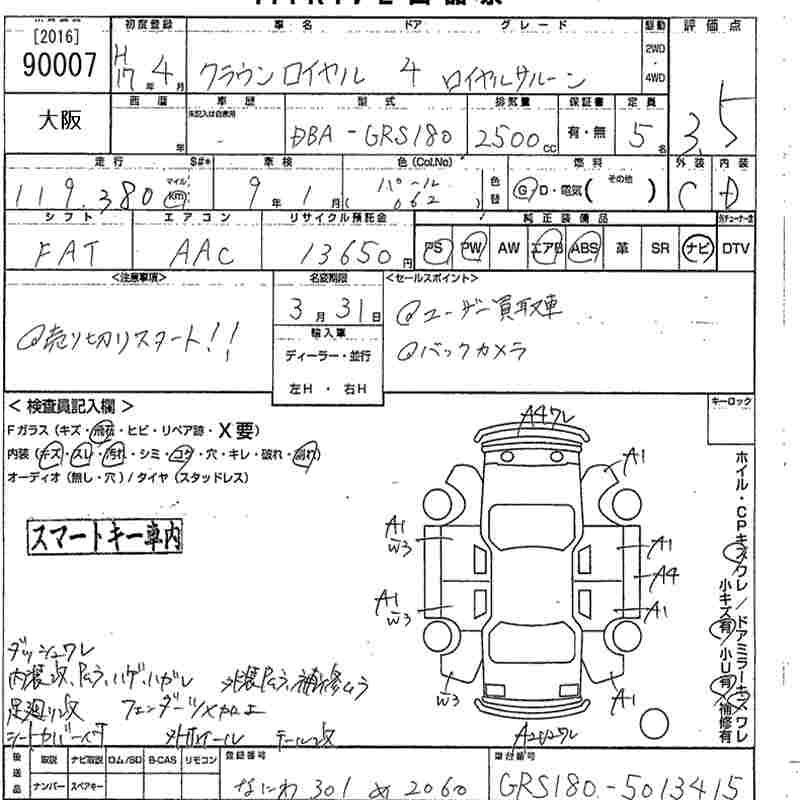 [2016]
90007
大阪
初度登録 車名 ドア グレード 駆動 評価点
H17年4月 クラウンロイヤル 4 ロイヤルサルーン 2WD・4WD 3.5
西暦 車歴 型式 排気量 保証書 定員
年 DBA-GRS180 2500cc 有・無 5名
走行 S#* 車検 色(Col,No) 燃料 外装 内装
119,380 マイル km 9年1月 パール (062) 色替 G D・電気( その他 ) C D
シフト エアコン リサイクル預託金 純正装備品
FAT AAC 13650円 PS PW AW エアB ABS 革 SR ナビ DTV
<注意事項> 名変期限 <セールスポイント>
売り切りスタート!!
3月31日
ユーザー買取車
バックカメラ
輸入車
ディーラー・並行
左H・右H
<検査員記入欄>
キーロック
Fガラス(キズ・飛石・ヒビ・リペア跡・X要)
内装(キズ・スレ・汚れ・シミ・コゲ・穴・キレ・破れ・割れ)
オーディオ(無し・穴)/タイヤ(スタッドレス)
スマートキー車内
A4ワレ
A1
A1
W3
A1
A4
A1
W3
A1
W3
A1
ホイル・CPキズワレ/ドアミラーキズワレ
小キズ有/小U有/補修有
ダッシュワレ
内装改、Pムラ、ハゲ、ハガレ 外装Pムラ、補修ムラ
足廻り改 フェンダーツメ加工
シートカバー 外ホイール テール改
後送品 取説 ナビ取説 ロム/SD B-CAS リモコン
ナンバー スペアキー
登録番号
なにわ 301 め 2060
車台番号
GRS180-5013415